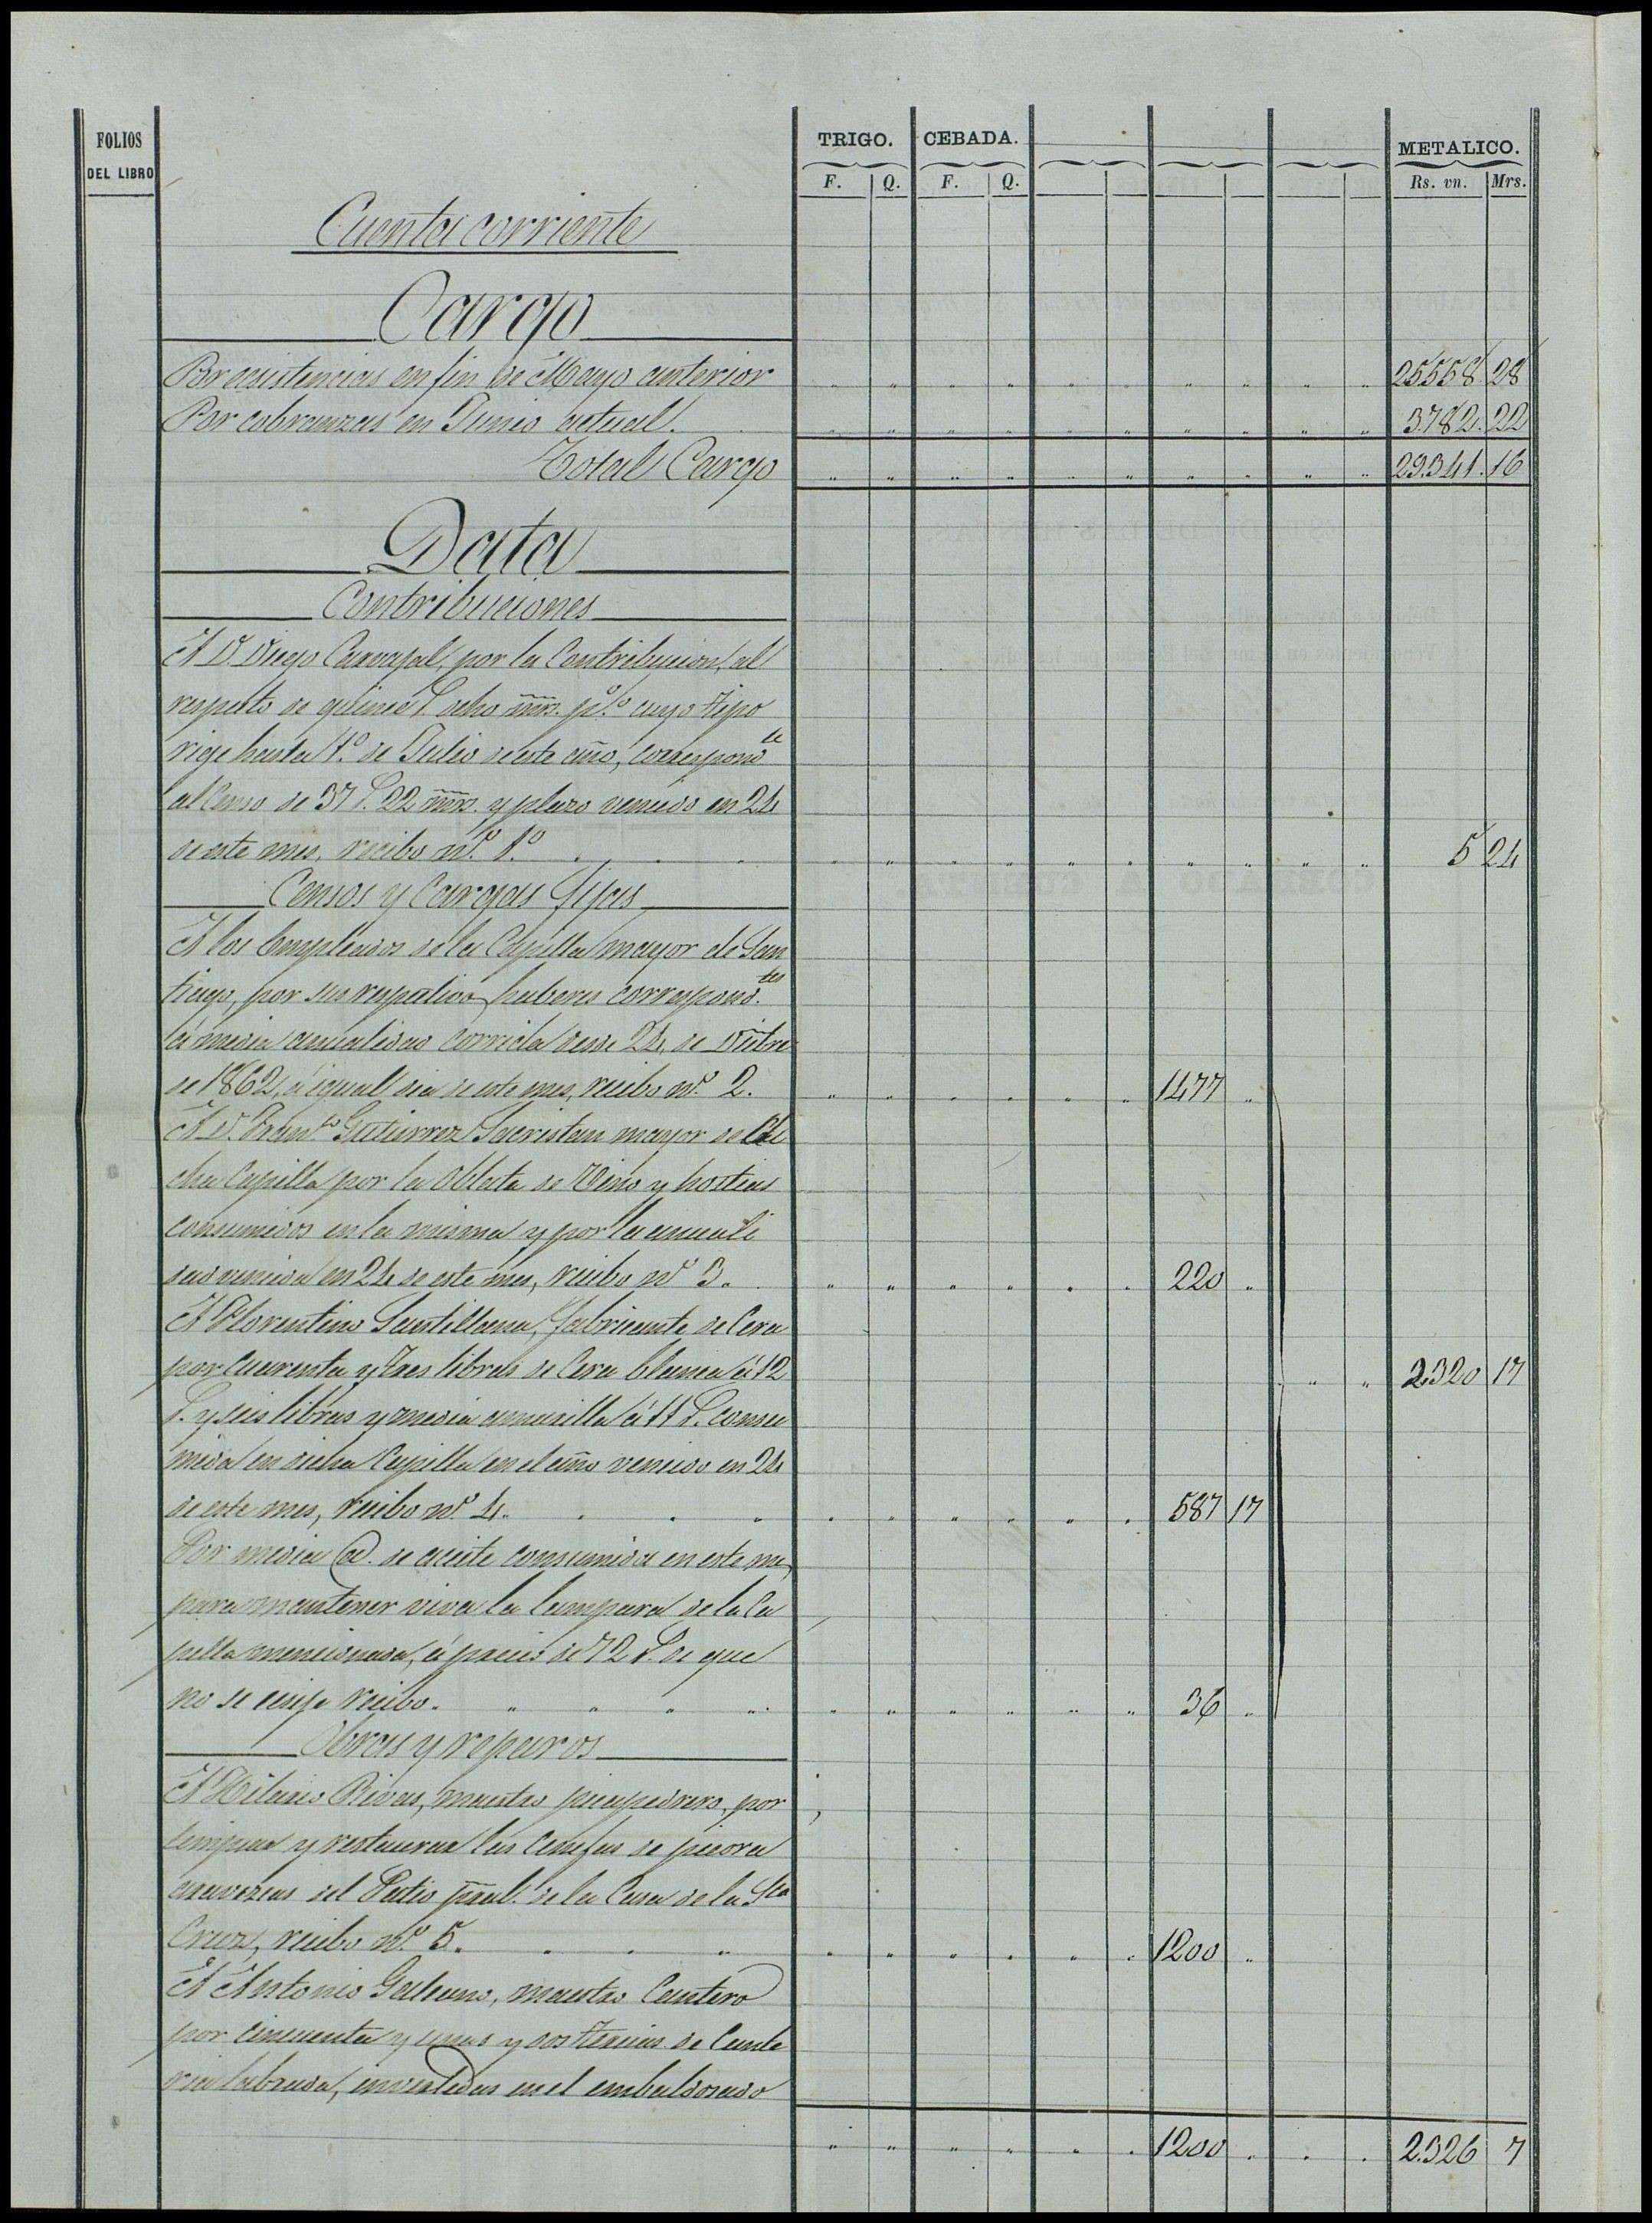 FOLIOS
DEL LIBRO
TRIGO. CEBADA. METALICO.
F. Q. F. Q. Rs. vn. Mrs.
Cuenta corriente
Cargo
Por existencias en fin de Mayo anterior 25558. 28
Por cobranzas en Junio actual. 3.782. 22
Total Cargo 29.341. 16
Data
Contribuciones
A D. Diego Carvajal, por la Contribucion, al
respecto de quince r. ocho mrs. p.% cuyo tipo
rige hasta 1.º de Julio de este año, correspond.te
al Censo de 37 r. 22 mrs. y plazo vencido en 24
de este mes, recibo n.º 1.º 5 24
Censos y Cargas fijas
A los Empleados de la Capilla mayor de San
tiago, por sus respectivos haberes correspond.tes
á media anualidad corrida desde 24, de Dizbre
de 1862, á igual dia de este mes, recibo n.º 2. 1477 "
A D. Gutierrez Sacristan mayor de di
cha Capilla por la oblata de Vino y hostias
consumidos en la misma y por la anuali
dad vencida en 24 de este mes, recibo nº 3. 220 "
A Florentino Santillana, fabricante de Cera
por cuarenta y tres libras de Cera blanca á 12 2.320 17
r. y seis libras y media amarilla á 11 r. consu
mida en dicha Capilla en el año vencido en 24
de este mes, recibo nº 4. 587 17
Por media @. de aceite consumida en este mes,
para mantener viva la lampara de la Ca
pilla mencionada, á precio de 72 r. de que
no se exije recibo. 36 "
Obras y reparos
A Hilario Rivas, maestro picapedrero, por
limpiar y restaurar las Cenefas de piedra
del Patio pral. de la Casa de la Sta
Cruz, recibo nº 5. 1200 "
A Antonio Galeano, maestro Cantero
por cincuenta y y dos tercias de Cante
ria labrada, invertidas en el embaldosado
1200 2.326 7